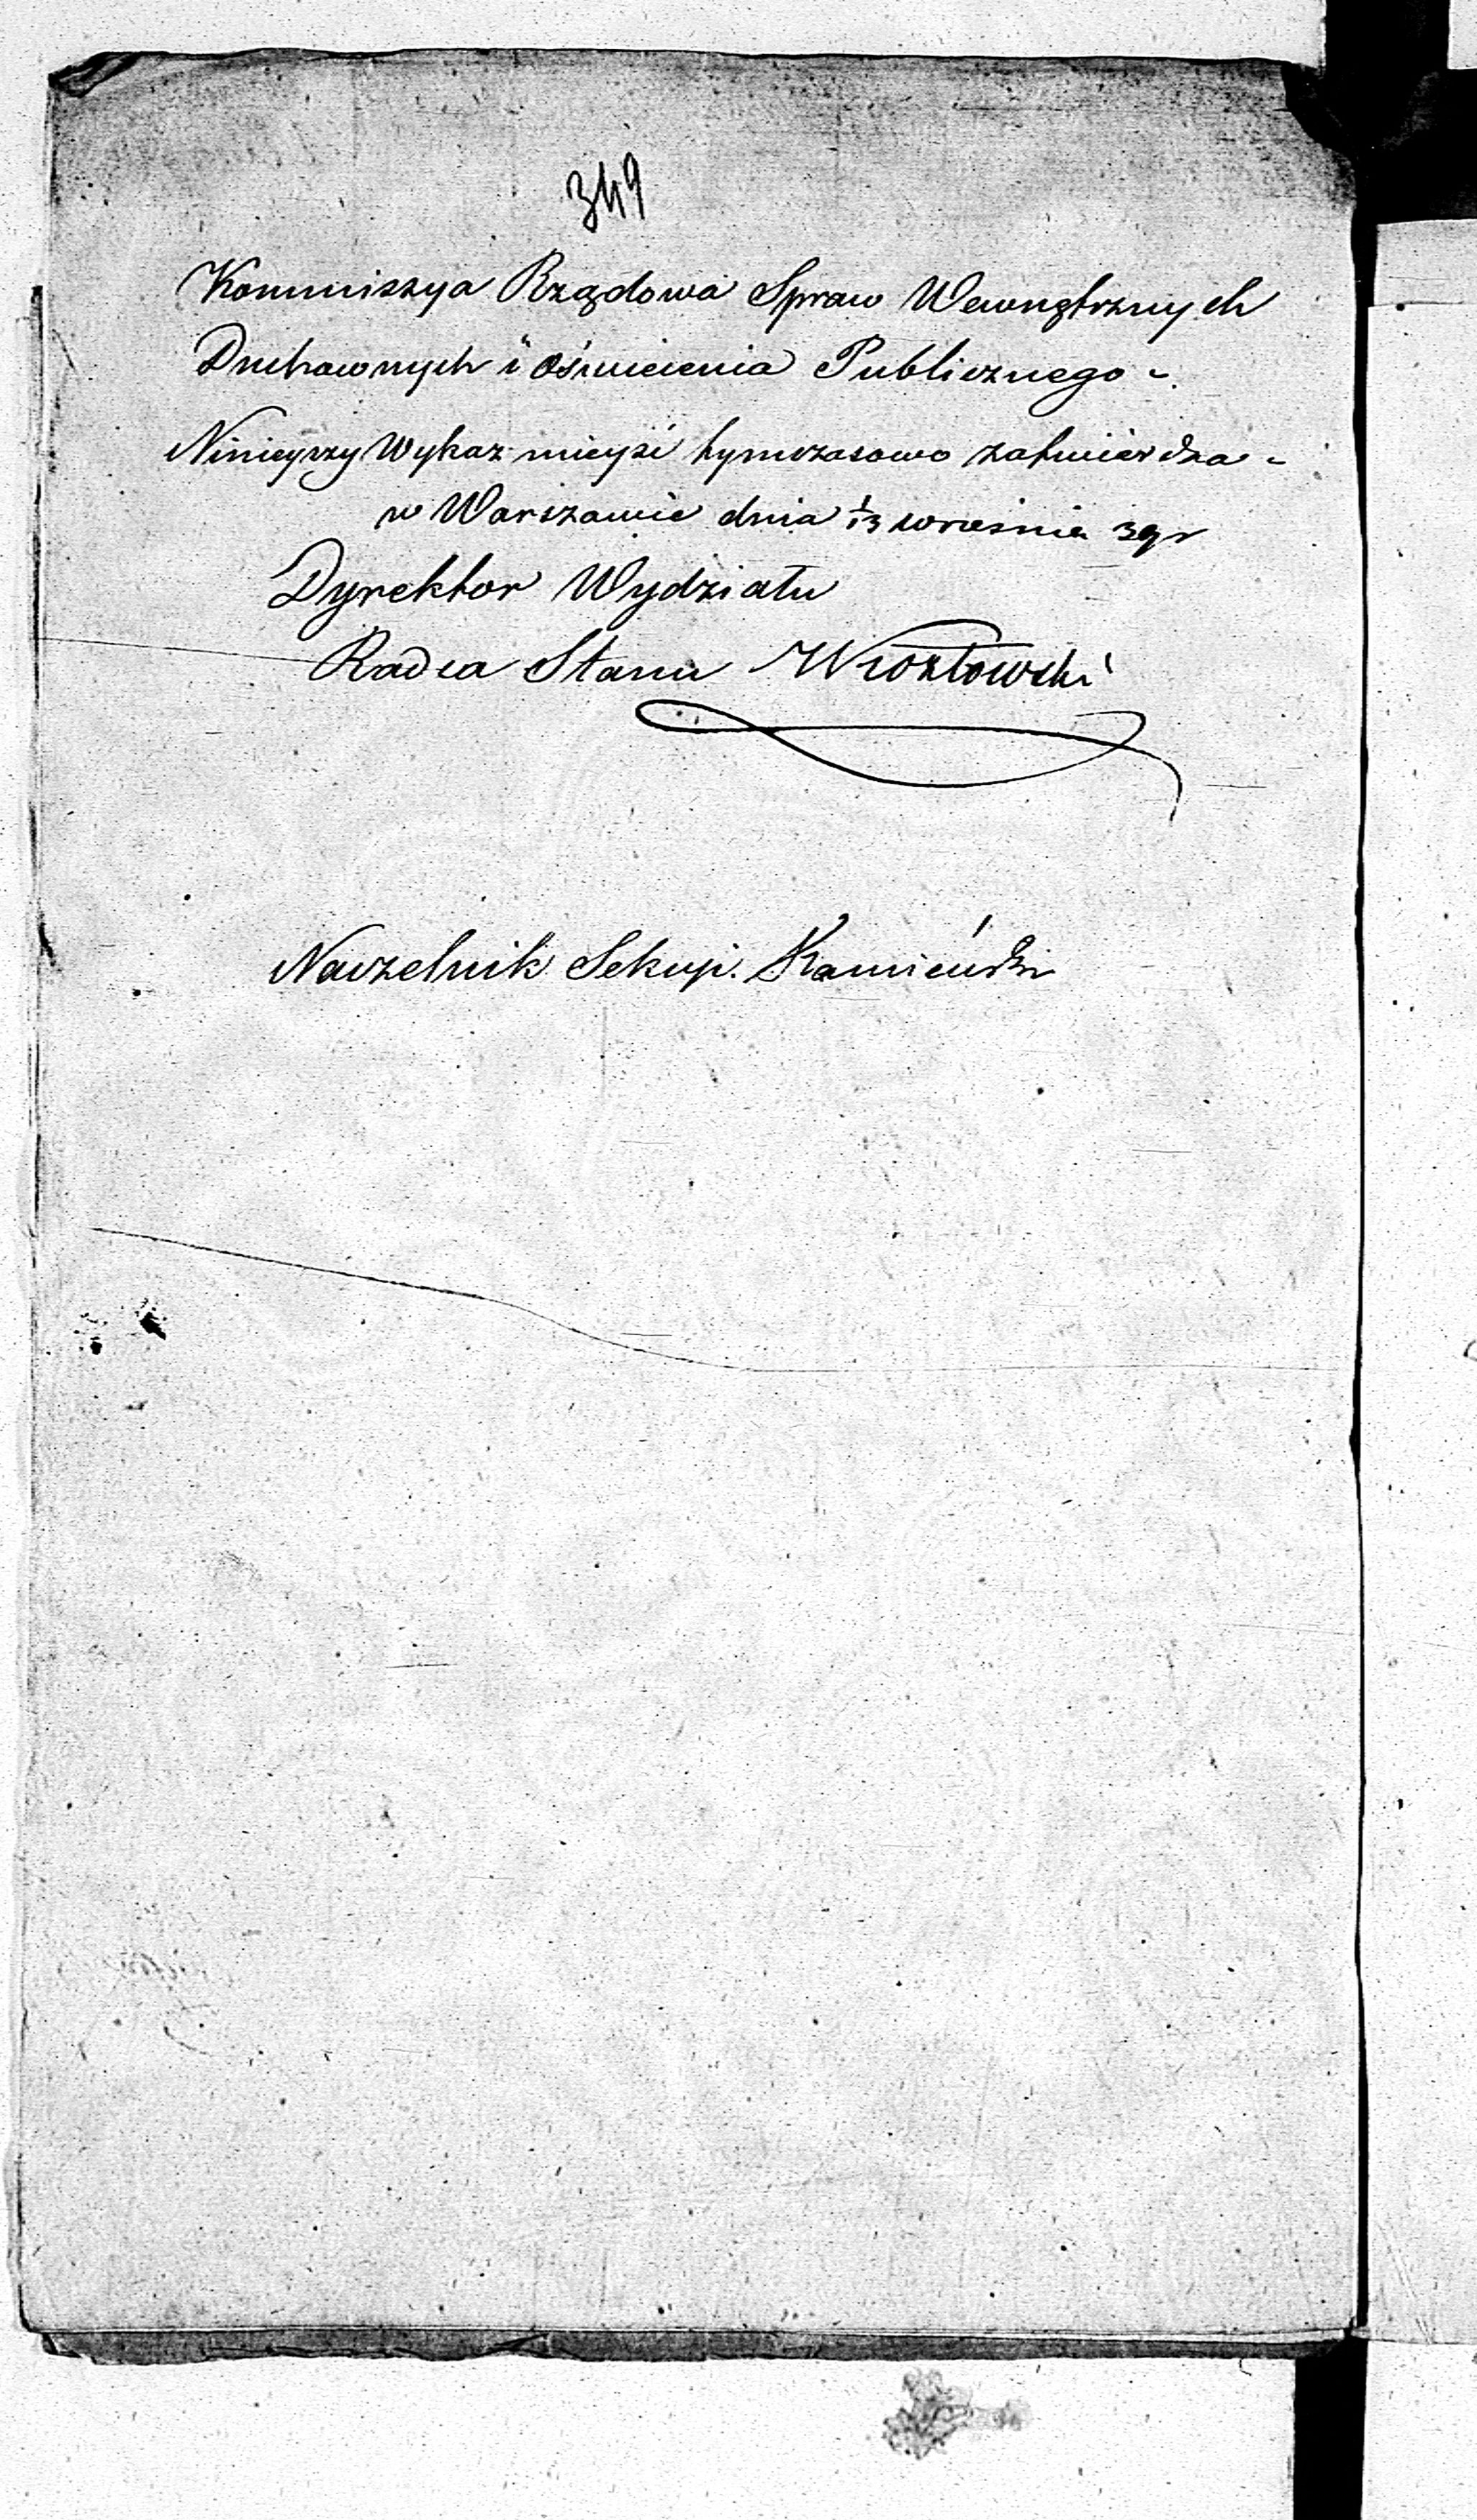 349
Kommissya Rządowa Spraw Wewnętrznych
Duchownych i Oświecenia Publicznego
Ninieyszy Wykaz mieysc tymczasowo zatwierdza
w Warszawie dnia 1/13 września 39 r
Dyrektor Wydziału
Radca Stanu
Naczelnik Sekcyi. Kamieński